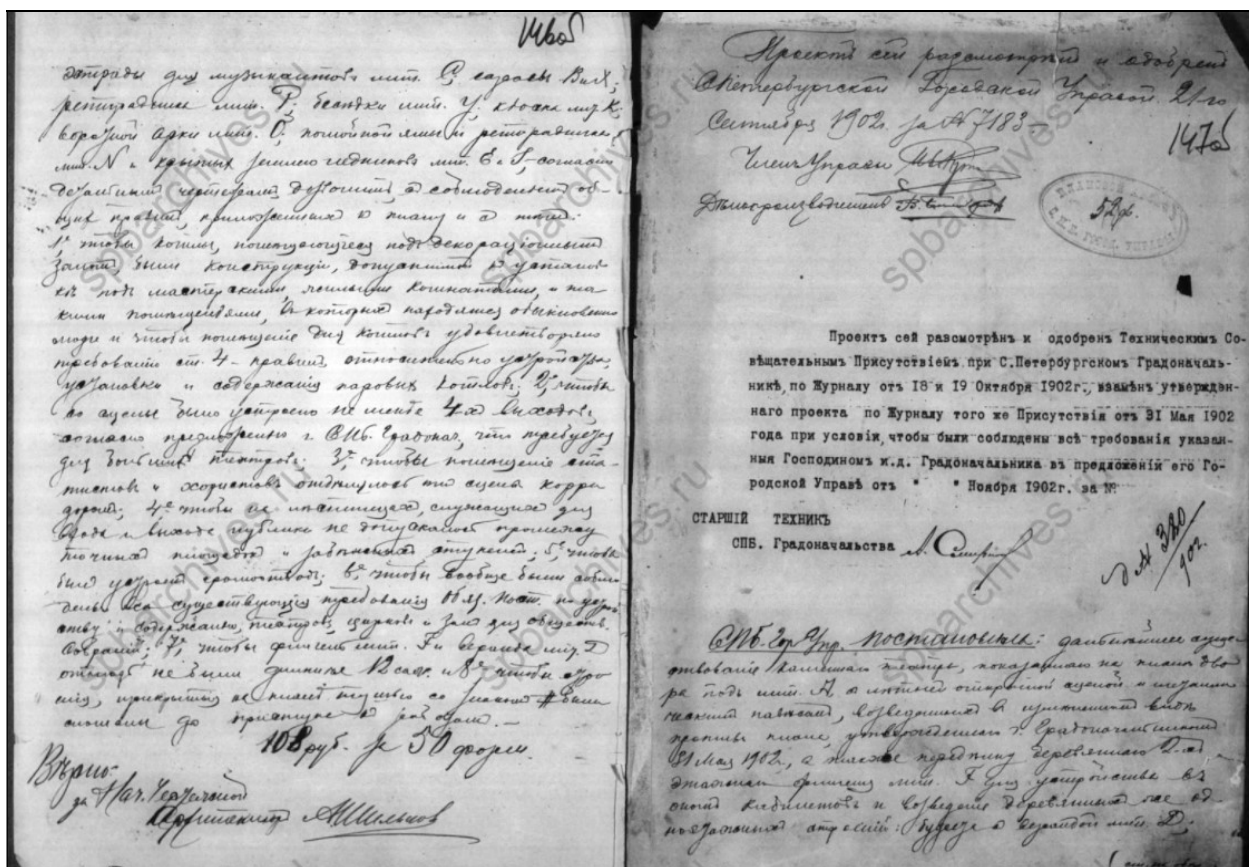 146об
эстрады для музыкантовъ лит. С, сараевъ В и Х,
ретирадника лит. Р, бесѣдки лит. У, кіоска лит. К,
воротной арки лит. О, помойной ямы и ретирадника
лит. N и крытыхъ землею ледниковъ лит. Е и S – согласно
чертежамъ, дозволить, съ соблюденіемъ об-
щихъ правилъ, приложенныхъ къ плану и съ тѣмъ:
1е чтобы котлы, помѣщающіеся подъ декораціоннымъ
заломъ, были конструкціи, допускаемой къ установ-
кѣ подъ мастерскими, жилыми комнатами, и та-
кими помѣщеніями, въ которыхъ находятся обыкновенно
люди и чтобы помѣщеніе для котловъ удовлетворяло
требованію ст. 4 – правилъ, относительно устройства,
установки и содержанія паровыхъ котловъ; 2е чтобы
со сцены было устроено не менѣе 4хъ выходовъ,
согласно предложенію г. СПб. Градонач., что требуется
для большихъ театровъ; 3е чтобы помѣщеніе ста-
тистовъ и хористовъ отдѣлялось отъ сцены корри-
доромъ; 4е чтобы на лѣстницахъ, служащихъ для
входа и выхода публики не допускалось промежу-
точныхъ площадокъ и забѣжныхъ ступеней; 5е чтобы
былъ устроенъ громоотводъ; 6е чтобы вообще были соблю-
дены все существующія требованія Об. Пост. по устрой-
ству и содержанію театровъ, цирковъ и залъ для обществ.
собраній; 7е чтобы флигель лит. F и веранда лит. D
отнюдь не были длиннѣе 12 саж. и 8е чтобы стро-
нія, прикрытыя на планѣ тушью со знакомъ # были
сломаны до приступа къ работамъ. –
108 руб. за 50 форм.
Вѣрно:
за Нач. Чертежной
Архитекторъ
Проектъ сей разсмотрѣнъ и одобренъ
СПетербургской Городской Управой 21-го
Сентября 1902 г. за № 7183 –
147об
Членъ Управы
Дѣлопроизводитель
52 р.
Проектъ сей разсмотрѣнъ и одобренъ Техническимъ Со-
вѣщательнымъ Присутствіемъ при С.Петербургскомъ Градоначаль-
никѣ, по Журналу отъ 18 и 19 Октября 1902г., взамѣнъ утвержден-
наго проекта по Журналу того же Присутствія отъ 31 Мая 1902
года при условіи, чтобы были соблюдены всѣ требованія указан-
ныя Господиномъ и.д. Градоначальника въ предложеніи его Го-
родской Управѣ отъ " " Ноября 1902г. за №
СТАРШІЙ ТЕХНИКЪ
СПБ. Градоначальства
д № 320/902.
СПб. Гор. Упр. постановила: дальнѣйшее сущес-
твованіе каменнаго театра, показаннаго на планѣ дво-
ра подъ лит. А, съ лѣтней открытой сценой и
возведенныхъ въ измѣненномъ видѣ
противъ плана, утвержденнаго г. Градоначальникомъ
31 Мая 1902, а также передѣлку деревяннаго 2-хъ
этажнаго флигеля лит. F для устройства въ
ономъ кабинетовъ и возведеніе деревянныхъ же од-
ноэтажныхъ строеній: буфета съ верандой лит. D,
spbarchives.ru
spbarchives.ru
spbarchives.ru
spbarchives.ru
spbarchives.ru
spbarchives.ru